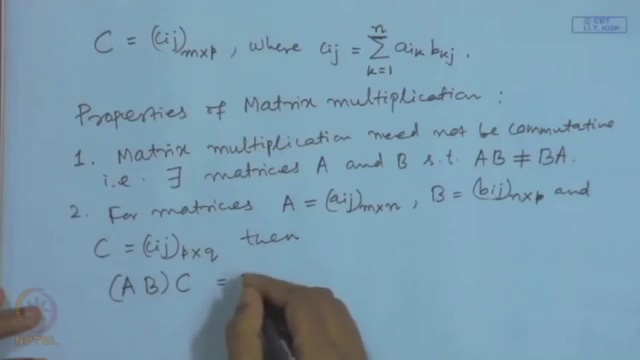 © CET
I.I.T. KGP
C = (cij)m×p, where cij = n∑k=1 aik bkj.
Properties of Matrix multiplication :
1. Matrix multiplication need not be commutative
i.e. ∃ matrices A and B s.t. AB ≠ BA.
2. For matrices A = (aij)m×n, B = (bij)n×p and
C = (cij)p×q then
(A B) C =
NPTEL